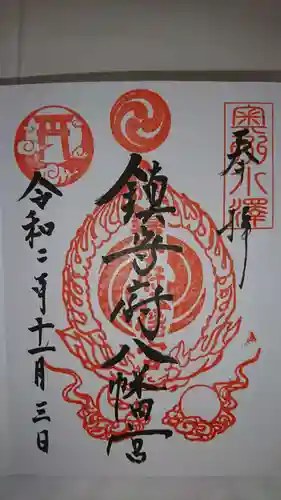 奉拝
奥州水澤
鎮守府八幡宮
令和二年十一月三日